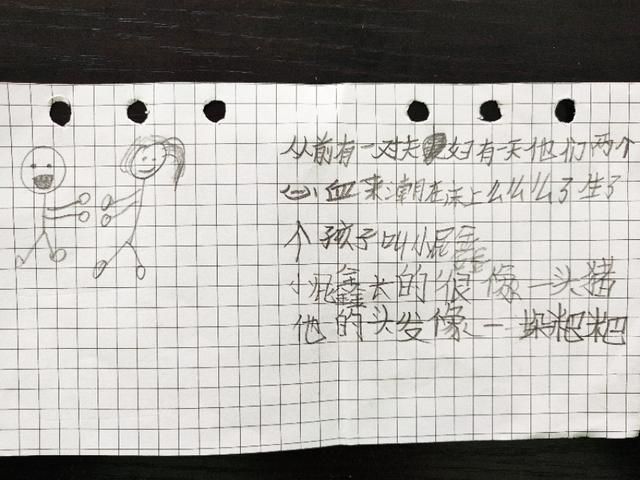 从前有一对夫妇有一天他们两个
心血来潮在床上么么么了生了
个孩子叫小屁鑫
小屁鑫长的很像一头猪
他的头发像一垛粑粑